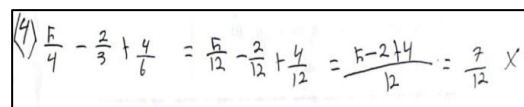 (4) 5/4 - 2/3 + 4/6 = 5/12 - 2/12 + 4/12 = 5-2+4/12 = 7/12 X